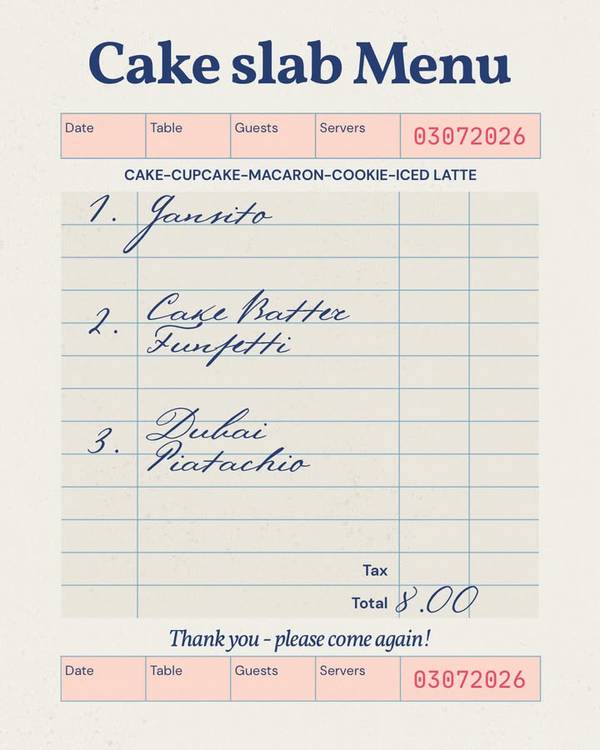 Cake slab Menu
Date Table Guests Servers 03072026
CAKE-CUPCAKE-MACARON-COOKIE-ICED LATTE
1. Gansito
2. Cake Batter
Funfetti
3. Dubai
Piatachio
Tax
Total 8.00
Thank you - please come again!
Date Table Guests Servers 03072026